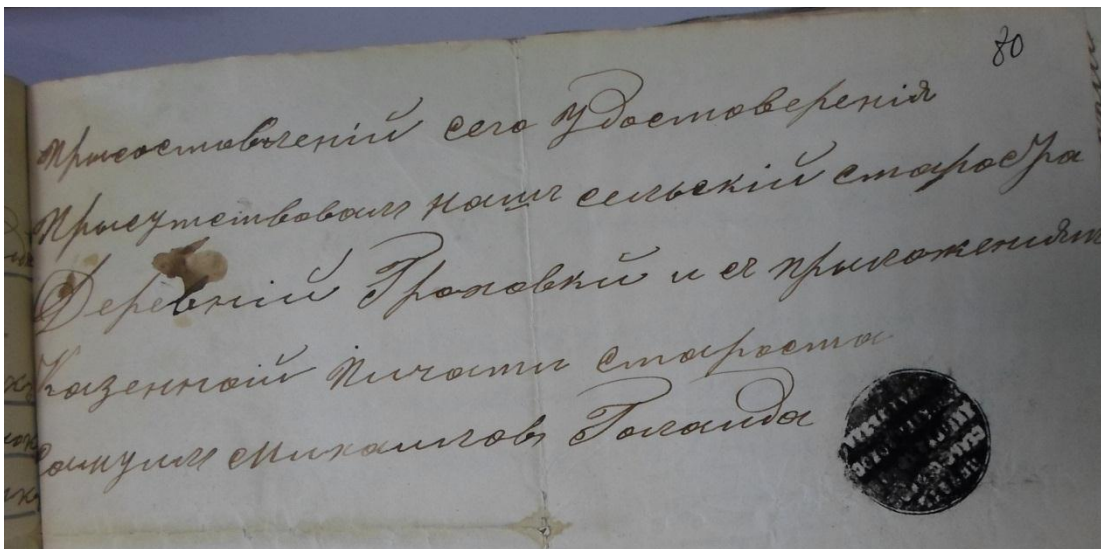 80
Присоставленій сего Удостоверенія
Присутствовалъ нашъ сельскій староста
Деревній Гроховкй и съ приложениям
Казенной Пичати староста
Самуилъ Михаиловъ Голанда